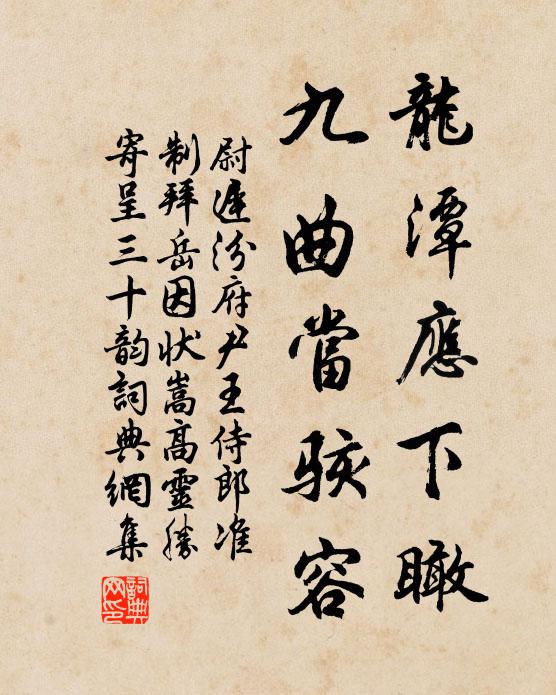 龍潭應下瞰
九曲當駭容
尉遲汾府尹王侍郎准
制拜岳因状嵩高靈勝
寄呈三十韵詞典網集
詞典網印